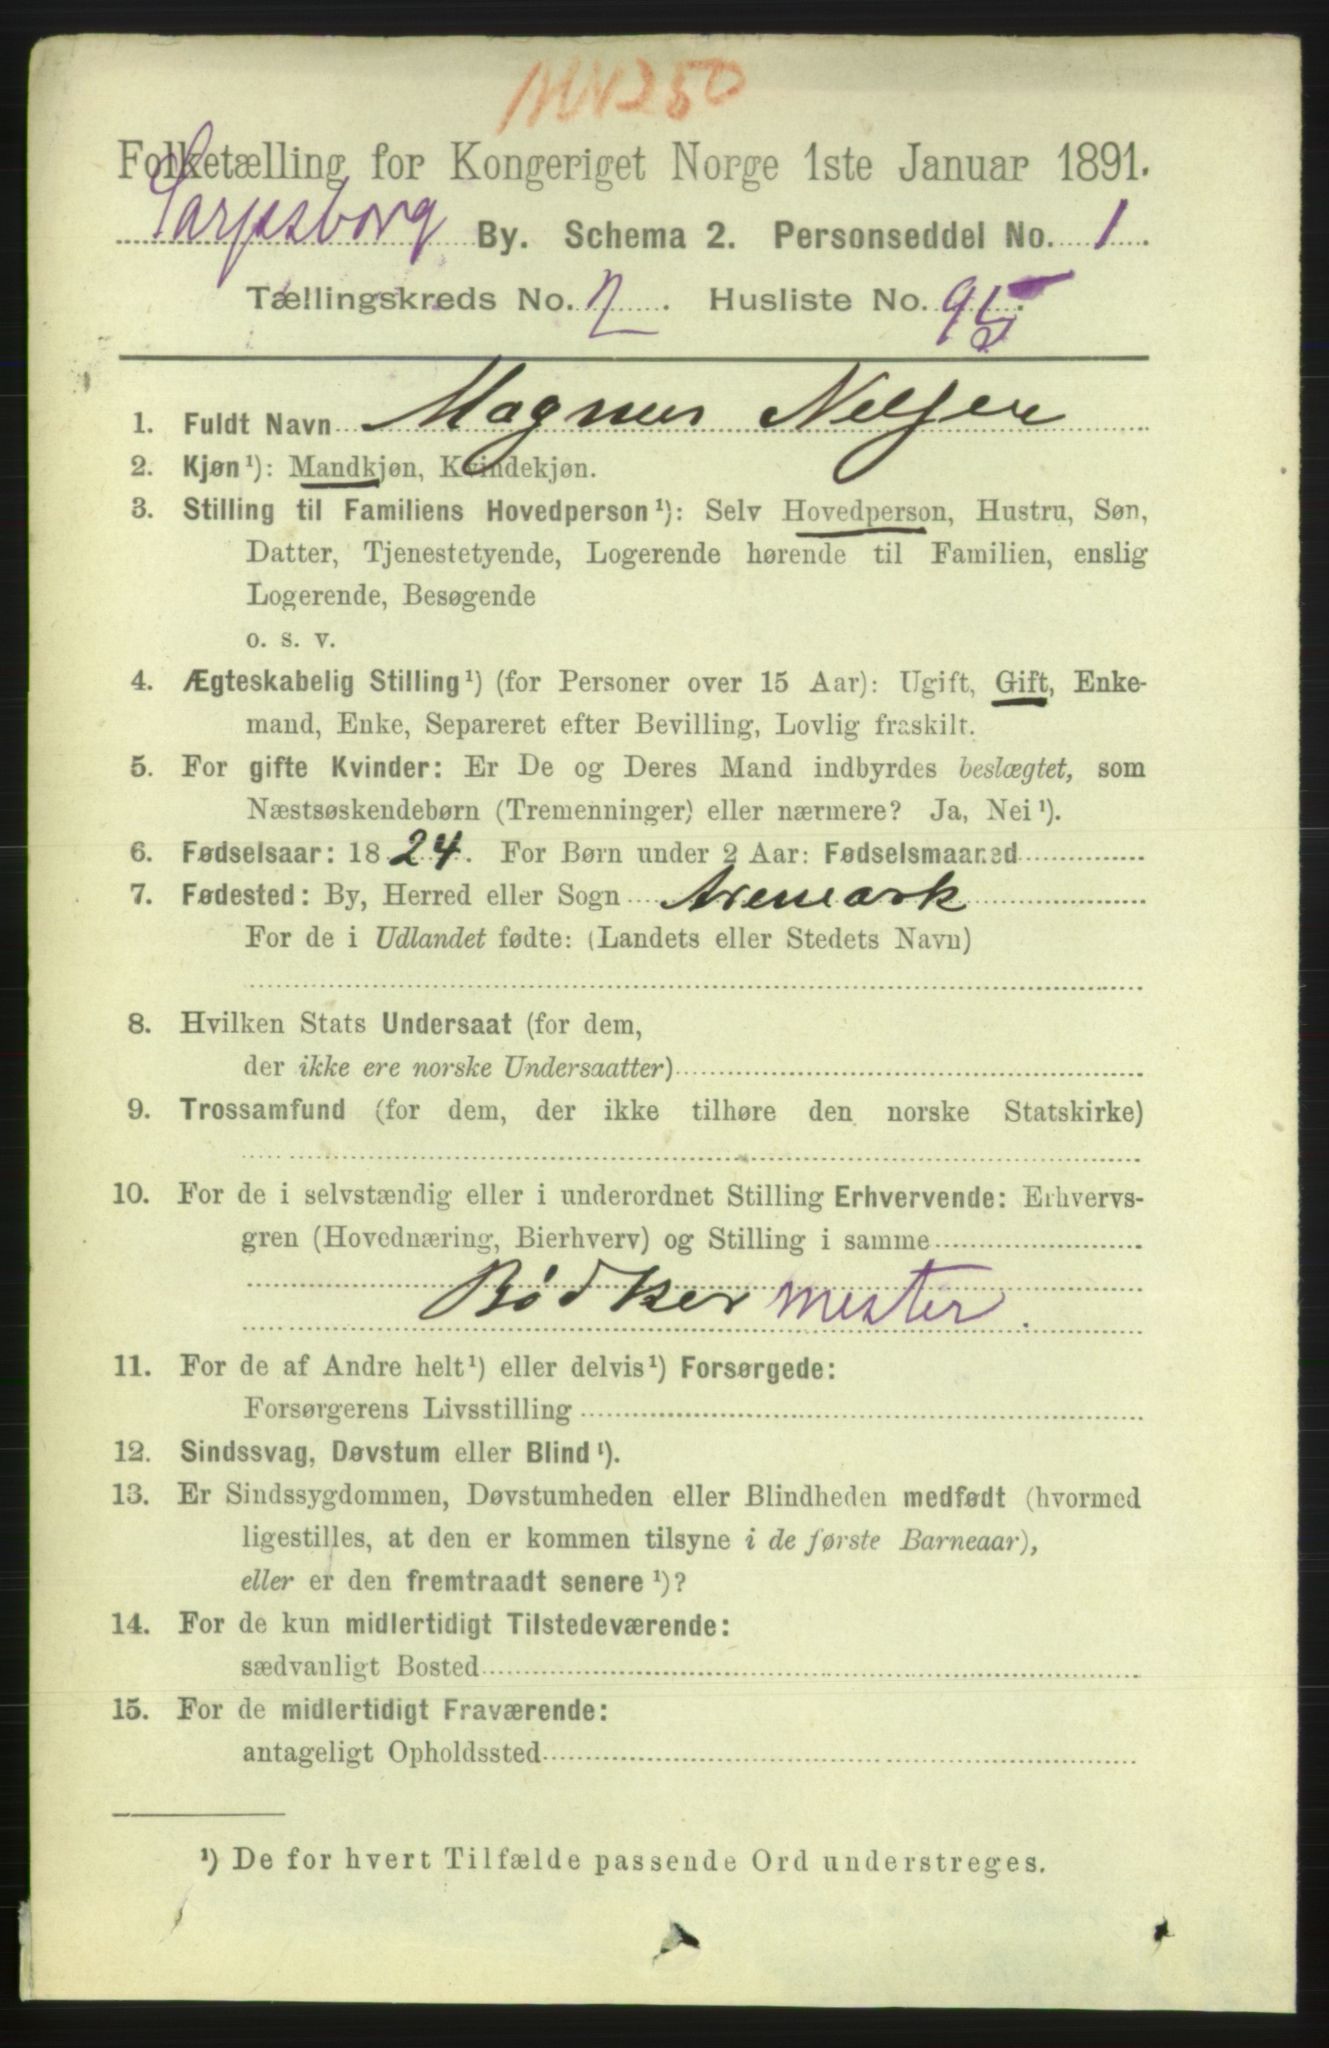 MN 250
Folketælling for Kongeriget Norge 1ste Januar 1891.
Sarpsborg By. Schema 2. Personseddel No. 1.
Tællingskreds No. 2. Husliste No. 95.
1. Fuldt Navn Magnus Nelsen
2. Kjøn¹): Mandkjøn, Kvindekjøn.
3. Stilling til Familiens Hovedperson¹): Selv Hovedperson, Hustru, Søn,
Datter, Tjenestetyende, Logerende hørende til Familien, enslig
Logerende, Besøgende
o. s. v.
4. Ægteskabelig Stilling¹) (for Personer over 15 Aar): Ugift, Gift, Enke-
mand, Enke, Separeret efter Bevilling, Lovlig fraskilt.
5. For gifte Kvinder: Er De og Deres Mand indbyrdes beslægtet, som
Næstsøskendebørn (Tremenninger) eller nærmere? Ja, Nei¹).
6. Fødselsaar: 1824. For Børn under 2 Aar: Fødselsmaaned
7. Fødested: By, Herred eller Sogn Aremark
For de i Udlandet fødte: (Landets eller Stedets Navn)
8. Hvilken Stats Undersaat (for dem,
der ikke ere norske Undersaatter)
9. Trossamfund (for dem, der ikke tilhøre den norske Statskirke)
10. For de i selvstændig eller i underordnet Stilling Erhvervende: Erhvervs-
gren (Hovednæring, Bierhverv) og Stilling i samme
Bødker mester.
11. For de af Andre helt¹) eller delvis¹) Forsørgede:
Forsørgerens Livsstilling
12. Sindssvag, Døvstum eller Blind¹).
13. Er Sindssygdommen, Døvstumheden eller Blindheden medfødt (hvormed
ligestilles, at den er kommen tilsyne i de første Barneaar),
eller er den fremtraadt senere¹)?
14. For de kun midlertidigt Tilstedeværende:
sædvanligt Bosted
15. For de midlertidigt Fraværende:
antageligt Opholdssted
¹) De for hvert Tilfælde passende Ord understreges.